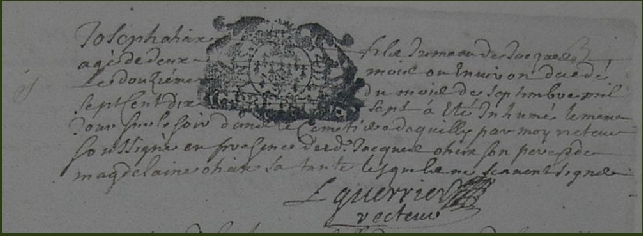 Joseph ohier fils du meau de Jacques
agé de deux mois ou environ decedé
Le douzieme du mois de septembre mil
sept cent dix sept a eté Inhumé le meme
Jour sur le soir dans le Cemetiere daquilly par moy recteur
soussigné en presence dud. Jacque ohier son pere & de
magdelaine ohier sa tante lesquels ne scavent signer
L guerrier
recteur